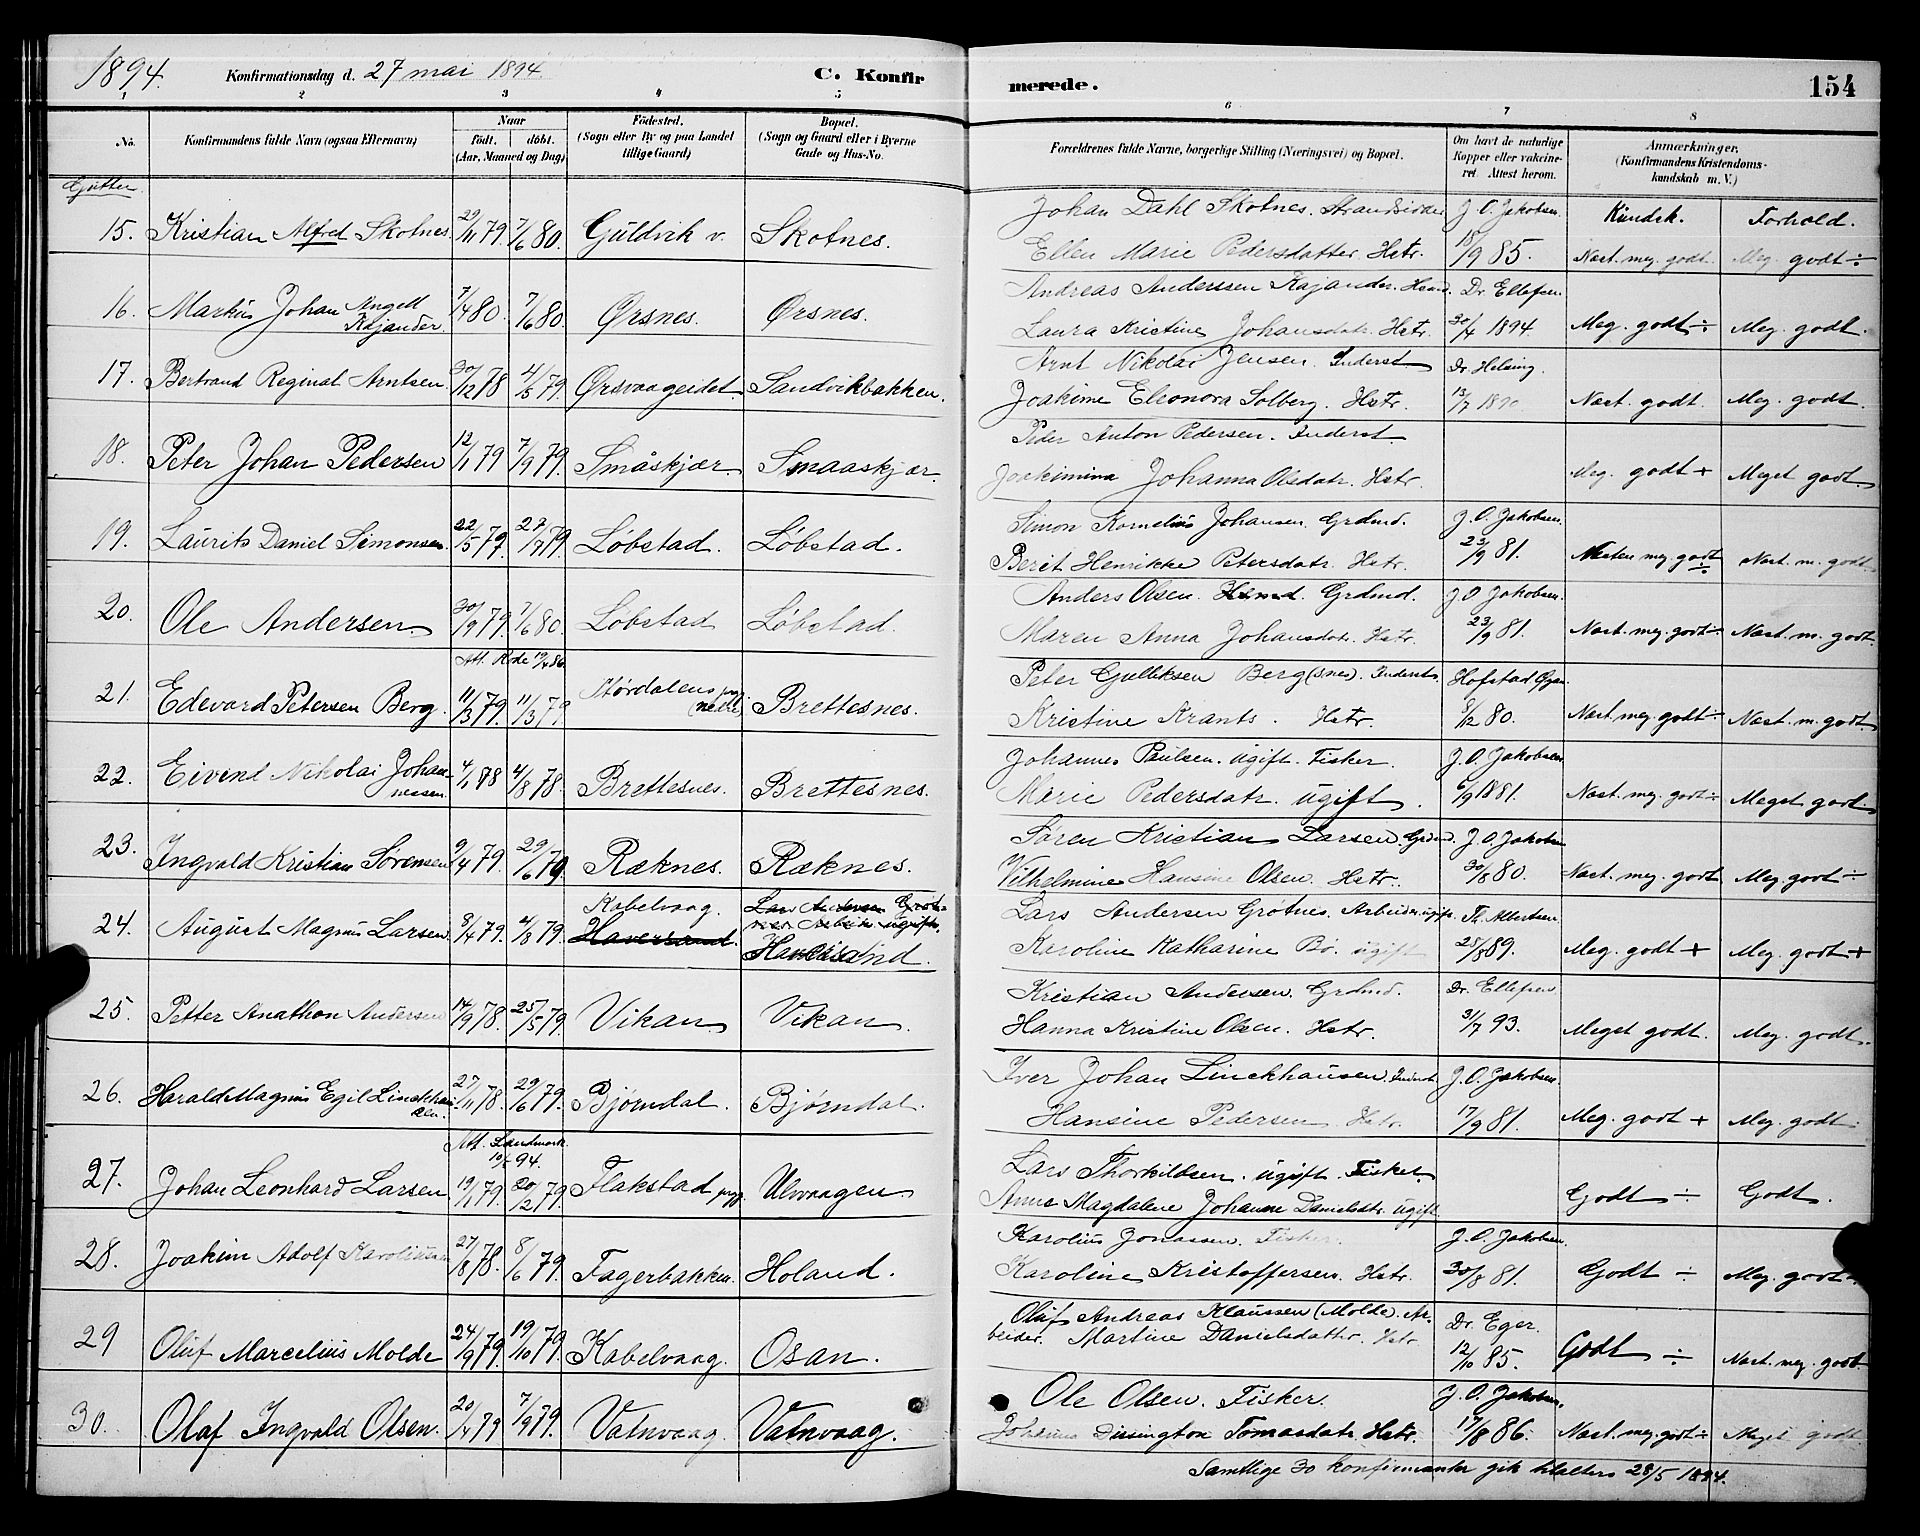 1894. Konfirmationsdag d. 27 mai 1894. C. Konfirmerede. 154
1 2 3 4 5 6 7 8
No. Konfirmandens fulde Navn (ogsaa Efternavn) Naar født. døbt. (Aar, Maaned og Dag) Fødested. (Sogn eller By og paa Landet tillige Gaard) Bopæl. (Sogn og Gaard eller i Byerne Gade og Hus-No. Forældrenes fulde Navne, borgerlige Stilling (Næringsvei) og Bopæl. Om havt de naturlige Kopper eller vakcineret. Attest herom. Anmærkninger. (Konfirmandens Kristendomskundskab m. V.)
Gutter.
Johan Dahl Skotnes. Strandsidder J. O. Jakobsen. Kundsk. Forhold.
15. Kristian Alfred Skotnes. 29/11 79. 7/6 80. Guldvik v. Skotnes. Ellen Marie Pedersdatter. Hstr. 18/9 85. Næst. meg. godt. Meg. godt ÷
Andreas Anderssen Kajander. Dr. Ellefsen.
16. Markus Johan Angell Kajander. 7/4 80. 7/6 80. Ørsnes. Ørsnes. Laura Kristine Johansdatr. Hstr. 30/4 1894. Meg. godt ÷ Meg. godt.
Arnt Nikolai Jensen. Inderst Dr. Helsing.
17. Bertrand Reginat Arntsen. 30/12 78 4/5 79. Ørsvaageidet Sandvikbakken. Joakime Eleonora Solberg. Hstr. 13/7 1890 Næst. godt. Meg. godt.
Peder Anton Pedersen. Inderst.
18. Peter Johan Pedersen 12/1 79 7/9 79. Småskjær. Smaaskjær. Joakimina Johanna Olsdatr. Hstr. Meg. godt + Meget godt.
Simon Kornelius Johansen. Grdmd. J. O. Jakobsen.
19. Laurits Daniel Simonsen. 22/5 79. 27/7 79. Løbstad. Løbstad. Berit Henrikke Petersdatr. Hstr. 23/9 81. Næsten meg. godt ÷ Næst. m. godt.
Anders Olsen. Grdmd. J. O. Jakobsen.
20. Ole Andersen. 30/9 79. 7/6 80. Løbstad Løbstad. Maren Anna Johansdatr. Hstr. 23/9 81. Næst. meg. godt ÷ Næst. m. godt
Att. Rode 19/4 86. Peter Gulliksen Berg (snes). Inderst. Hofstad
21. Edevard Petersen Berg. 11/3 79. 11/3 79 Størdalens prgj. (nedre) Brettesnes. Kristine Krants. Hstr. 8/12 80. Næst. meg. godt ÷ Næst. m. godt.
Johannes Paulsen. ugift. Fisker. J. O. Jakobsen
22. Eivend Nikolai Johannessen 4/1 78 4/8 78. Brettesnes. Brettesnes. Marie Pedersdatr. ugift. 6/9 1881. Næst. meg. godt ÷ Meget godt.
Søren Kristian Larsen. Grdmd. J. O. Jakobsen
23. Ingvald Kristian Sørensen 9/4 79. 29/6 79. Ræknes. Ræknes. Vilhelmine Hansine Olsen. Hstr. 30/8 80. Næst. meg. godt Meg. godt ÷
Kabelvaag. Lars Andersen Grøtnes Arbeider ugift. Lars Andersen Grøtnes. Arbeider. ugift. Th. Albertsen.
24. August Magnus Larsen. 8/4 79. 4/8 79. Haversand. Haversand. Karoline Katharine Bø. ugift 25/8 89. Meg. godt + Meg. godt +
Kristian Andersen. Grdmd. Dr. Ellefsen
25. Petter Anathon Andersen 14/9 78. 25/5 79. Vikan. Vikan. Hanna Kristine Olsen. Hstr. 31/7 93. Meget godt. Meg. godt.
Iver Johan Linckhausen. Inderst. J. O. Jakobsen.
26. Harald Magnus Egil Linckhausen. 27/11 78. 29/6 79. Bjørndal. Bjørndal. Hansine Pedersen Hstr. 17/9 81. Meg. godt + Meg. godt.
Att. Landmark 10/5 94. Lars Thorkildsen. ugift. Fisker.
27. Johan Leonhard Larsen 19/1 79. 20/2 79. Flakstad prgj. Ulvaagen Anne Magdalene Johanne Danielsdtr. ugift. Godt ÷ Godt.
Karolius Jonassen. Fisker. J. O. Jakobsen.
28. Joakim Adolf Karoliussen 27/8 78. 8/6 79. Fagerbakken. Holand. Karoline Kristoffersen. Hstr. 30/8 81. Godt ÷ Meg. godt
Oluf Andreas Klaussen (Molde). Ar- Dr. Eger.
29 Oluf Marcelius Molde 24/9 79. 19/10 79. Kabelvaag. Osan. beider. Martine Danielsdatter. Hstr. 12/10 85. Godt ÷ Næst. meg. godt.
Ole Olsen. Fisker. J. O. Jakobsen.
30. Olaf Ingvald Olsen. 20/4 79 7/9 79. Vatnvaag. Vatnvaag. Johanna Disington Tomasdatr. Hstr. 17/8 86. Næst. meg. godt ÷ Meget godt.
Samtlige 30 konfirmanter gik til alters 28/5 1894.